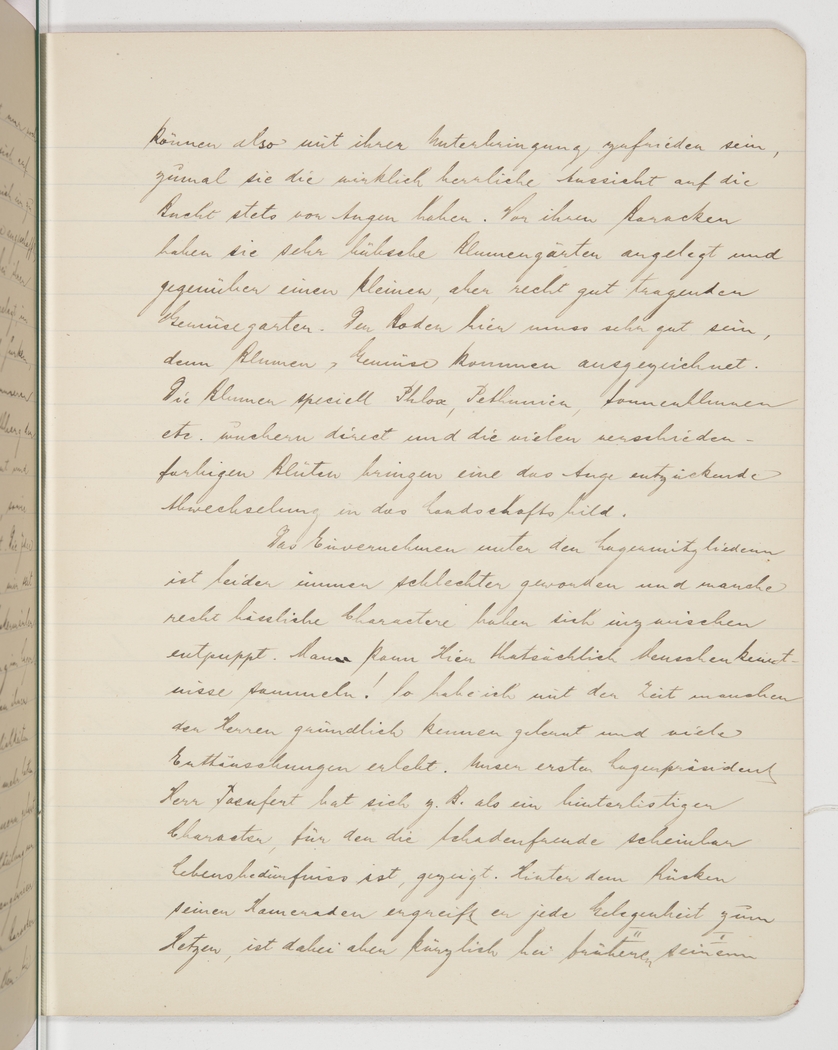 können also mit ihrer Unterbringung zufrieden sein,
zumal sie die wirklich herrliche Aussicht auf die
Bucht stets vor Augen haben. Vor ihren Baracken
haben sie sehr hübsche Blumengärten angelegt und
gegenüber einen kleinen, aber recht gut tragenden
Gemüsegarten. Der Boden hier muss sehr gut sein,
denn Blumen, Gemüse kommen ausgezeichnet.
Die Blumen speciell Phlox, Pethunien, Sonnenblumen
etc. wuchern direct und die vielen verschieden-
farbigen Blüten bringen eine das Auge entzückende
Abwechselung in das Landschaftsbild.
Das Einvernehmen unter den Lagermitgliedern
ist leider immer schlechter geworden und manche
recht hässliche Charactere haben sich inzwischen
entpuppt. Man kann hier thatsächlich Menschenkennt-
nisse sammeln! So habe ich mit der Zeit manchen
der Herren gründlich kennen gelernt und viele
Enttäuschungen erlebt. Unser erster Lagerpräsident
Herr hat sich z. B. als ein hinterlistiger
Character, für den die Schadenfreude scheinbar
Lebensbedürfniss ist, gezeigt. Hinter dem Rücken
seiner Kameraden ergreift er jede Gelegenheit zum
Hetzen, ist dabei aber kürzlich bei früheren seinem